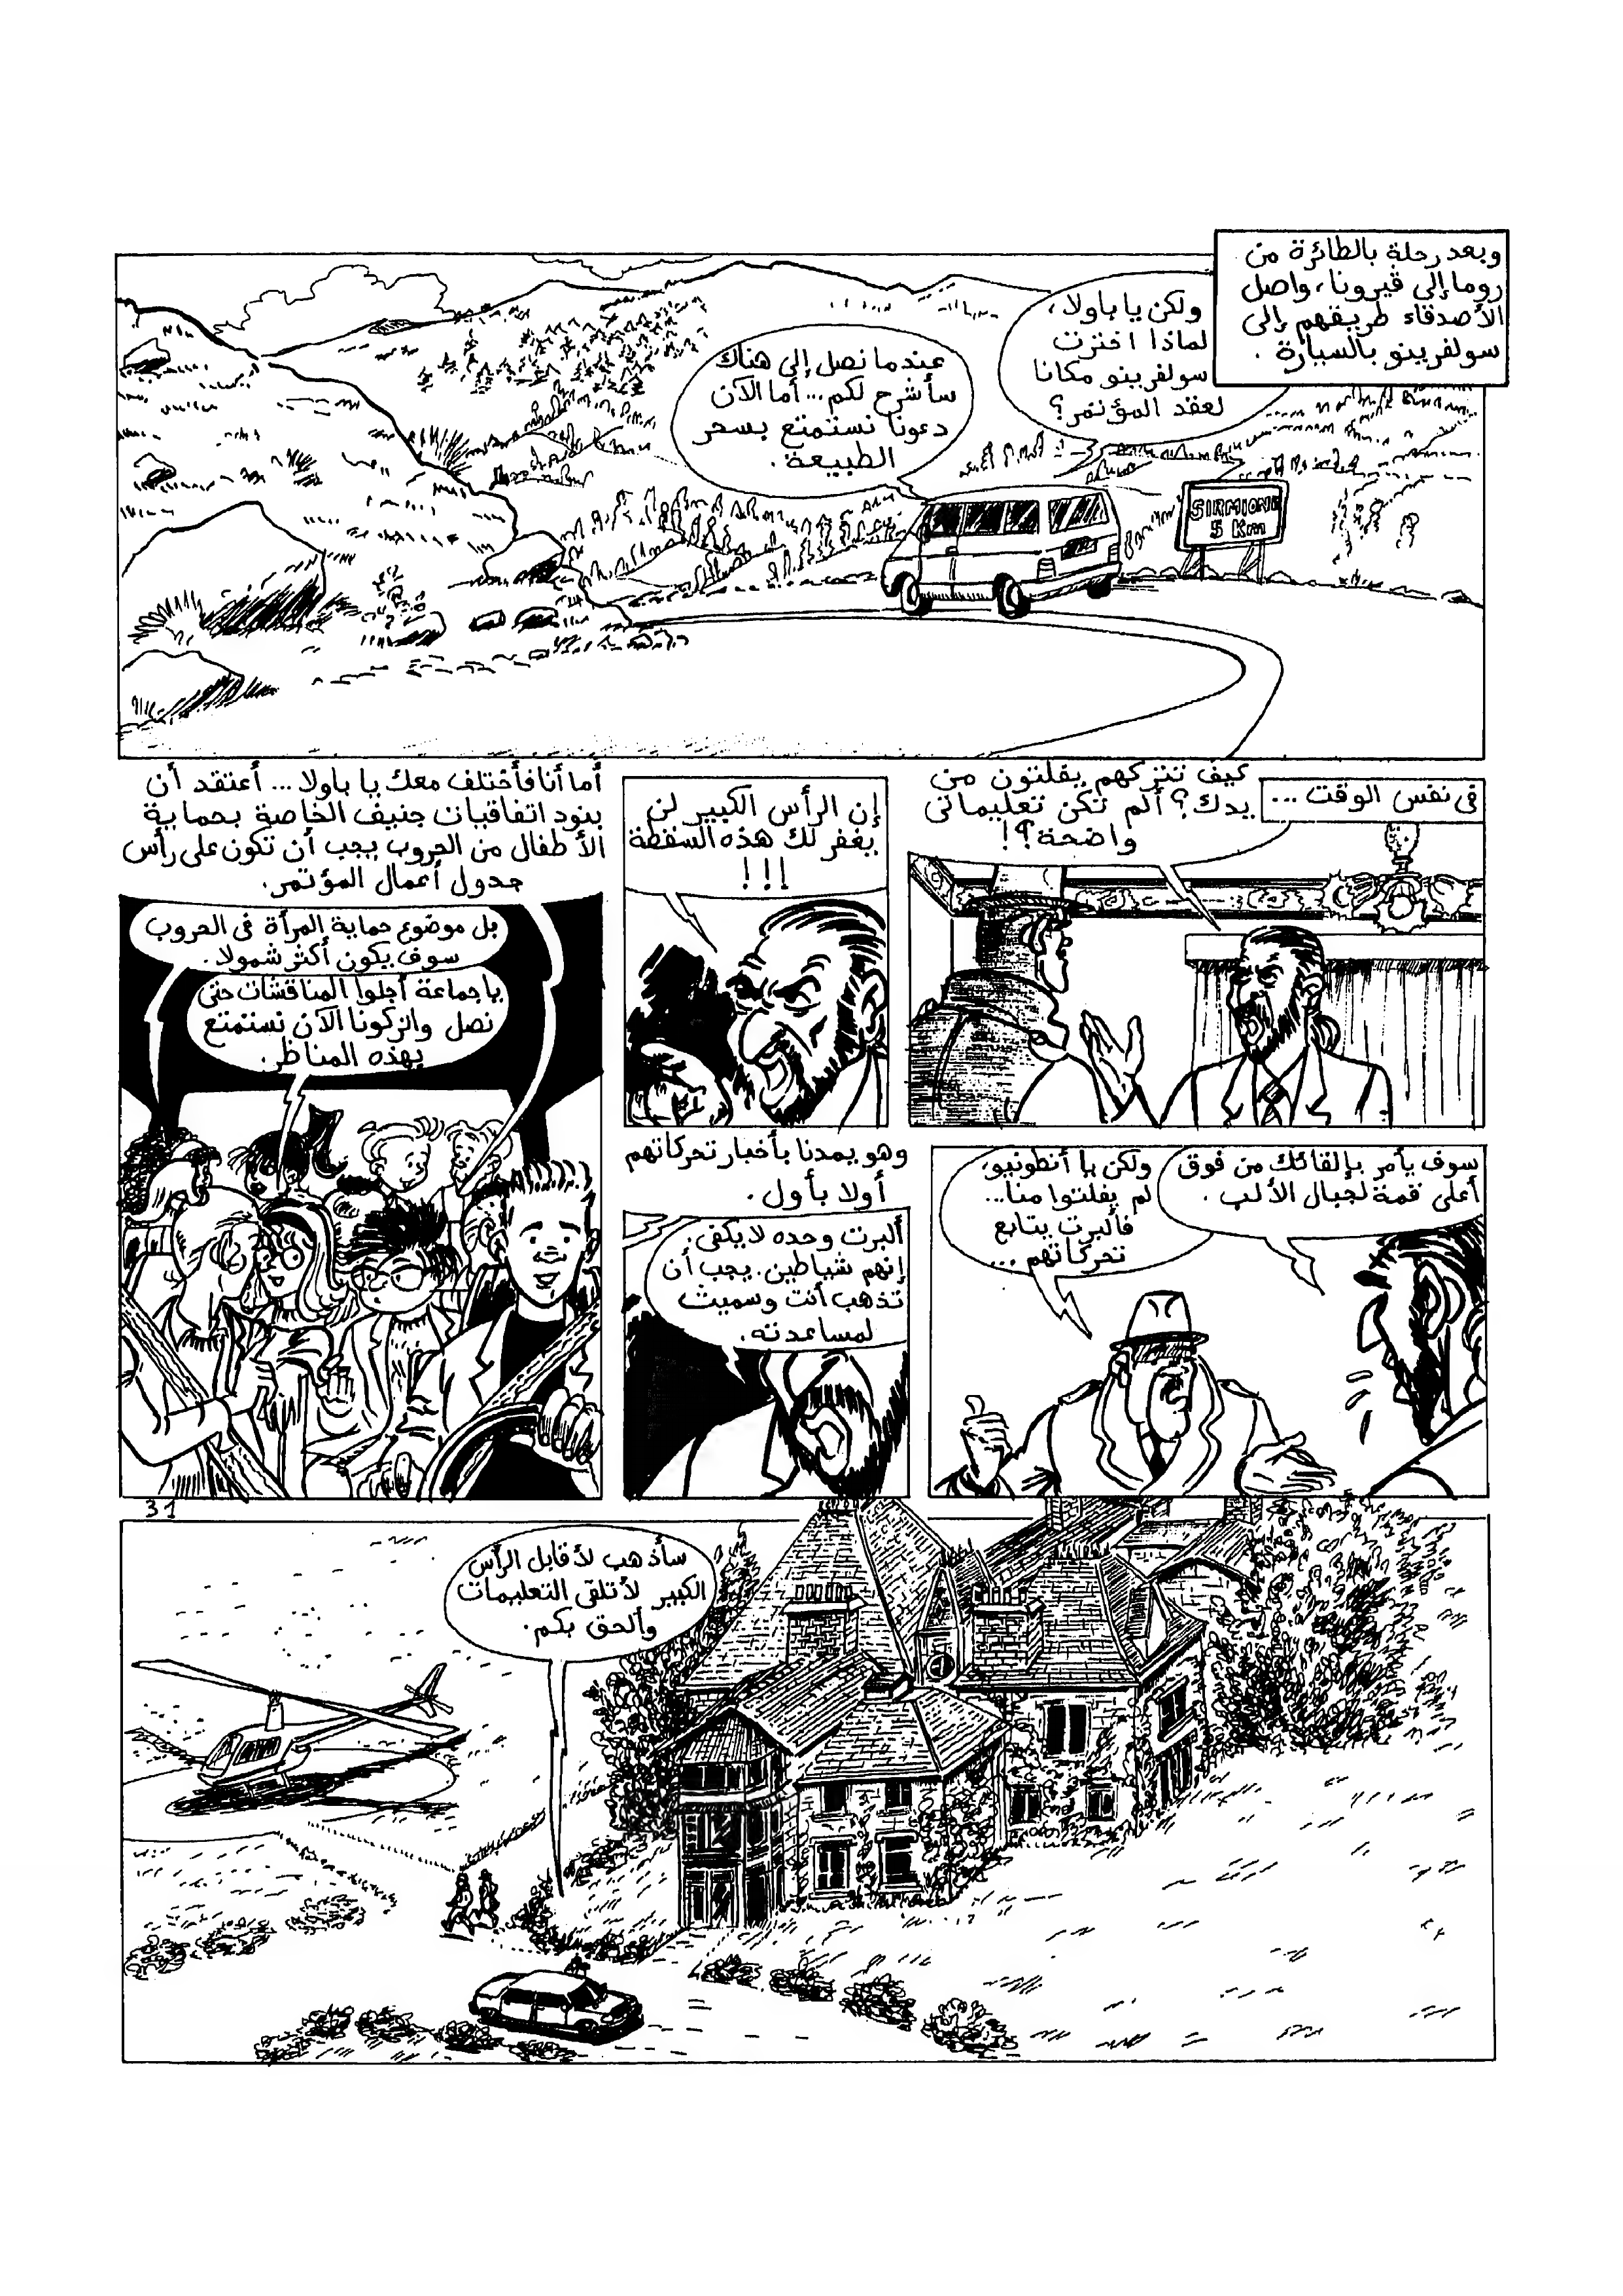 وبعد رحلة بالطائرة من
روما إلى ڤيرونا، واصل
الأصدقاء طريقهم إلى
سولفرينو بالسيارة.
ولكن يا باولا،
لماذا اخترت
سولفرينو مكانا
لعقد المؤتمر؟
عندما نصل إلى هناك
سأشرح لكم... أما الآن
دعونا نستمتع بسحر
الطبيعة.
SIRMIONE
5 Km
فى نفس الوقت...
كيف تتركهم يفلتون من
يدك؟ ألم تكن تعليماتى
واضحة؟!
إن الرأس الكبير لن
يغفر لك هذه السقطة
!!!
أما أنا فأختلف معك يا باولا... أعتقد أن
بنود اتفاقيات جنيف الخاصة بحماية
الأطفال من الحروب يجب أن تكون على رأس
جدول أعمال المؤتمر.
بل موضوع حماية المرأة فى الحروب
سوف يكون أكثر شمولا.
يا جماعة أجلوا المناقشات حتى
نصل واتركونا الآن نستمتع
بهذه المناظر.
سوف يأمر بإلقائك من فوق
أعلى قمة لجبال الألب.
ولكن يا أنطونيو،
لم يفلتوا منا...
فألبرت يتابع
تحركاتهم...
وهو يمدنا بأخبار تحركاتهم
أولا بأول.
ألبرت وحده لا يكفى.
إنهم شياطين. يجب أن
تذهب أنت وسميث
لمساعدته.
31
سأذهب لأقابل الرأس
الكبير لأتلقى التعليمات
وألحق بكم.